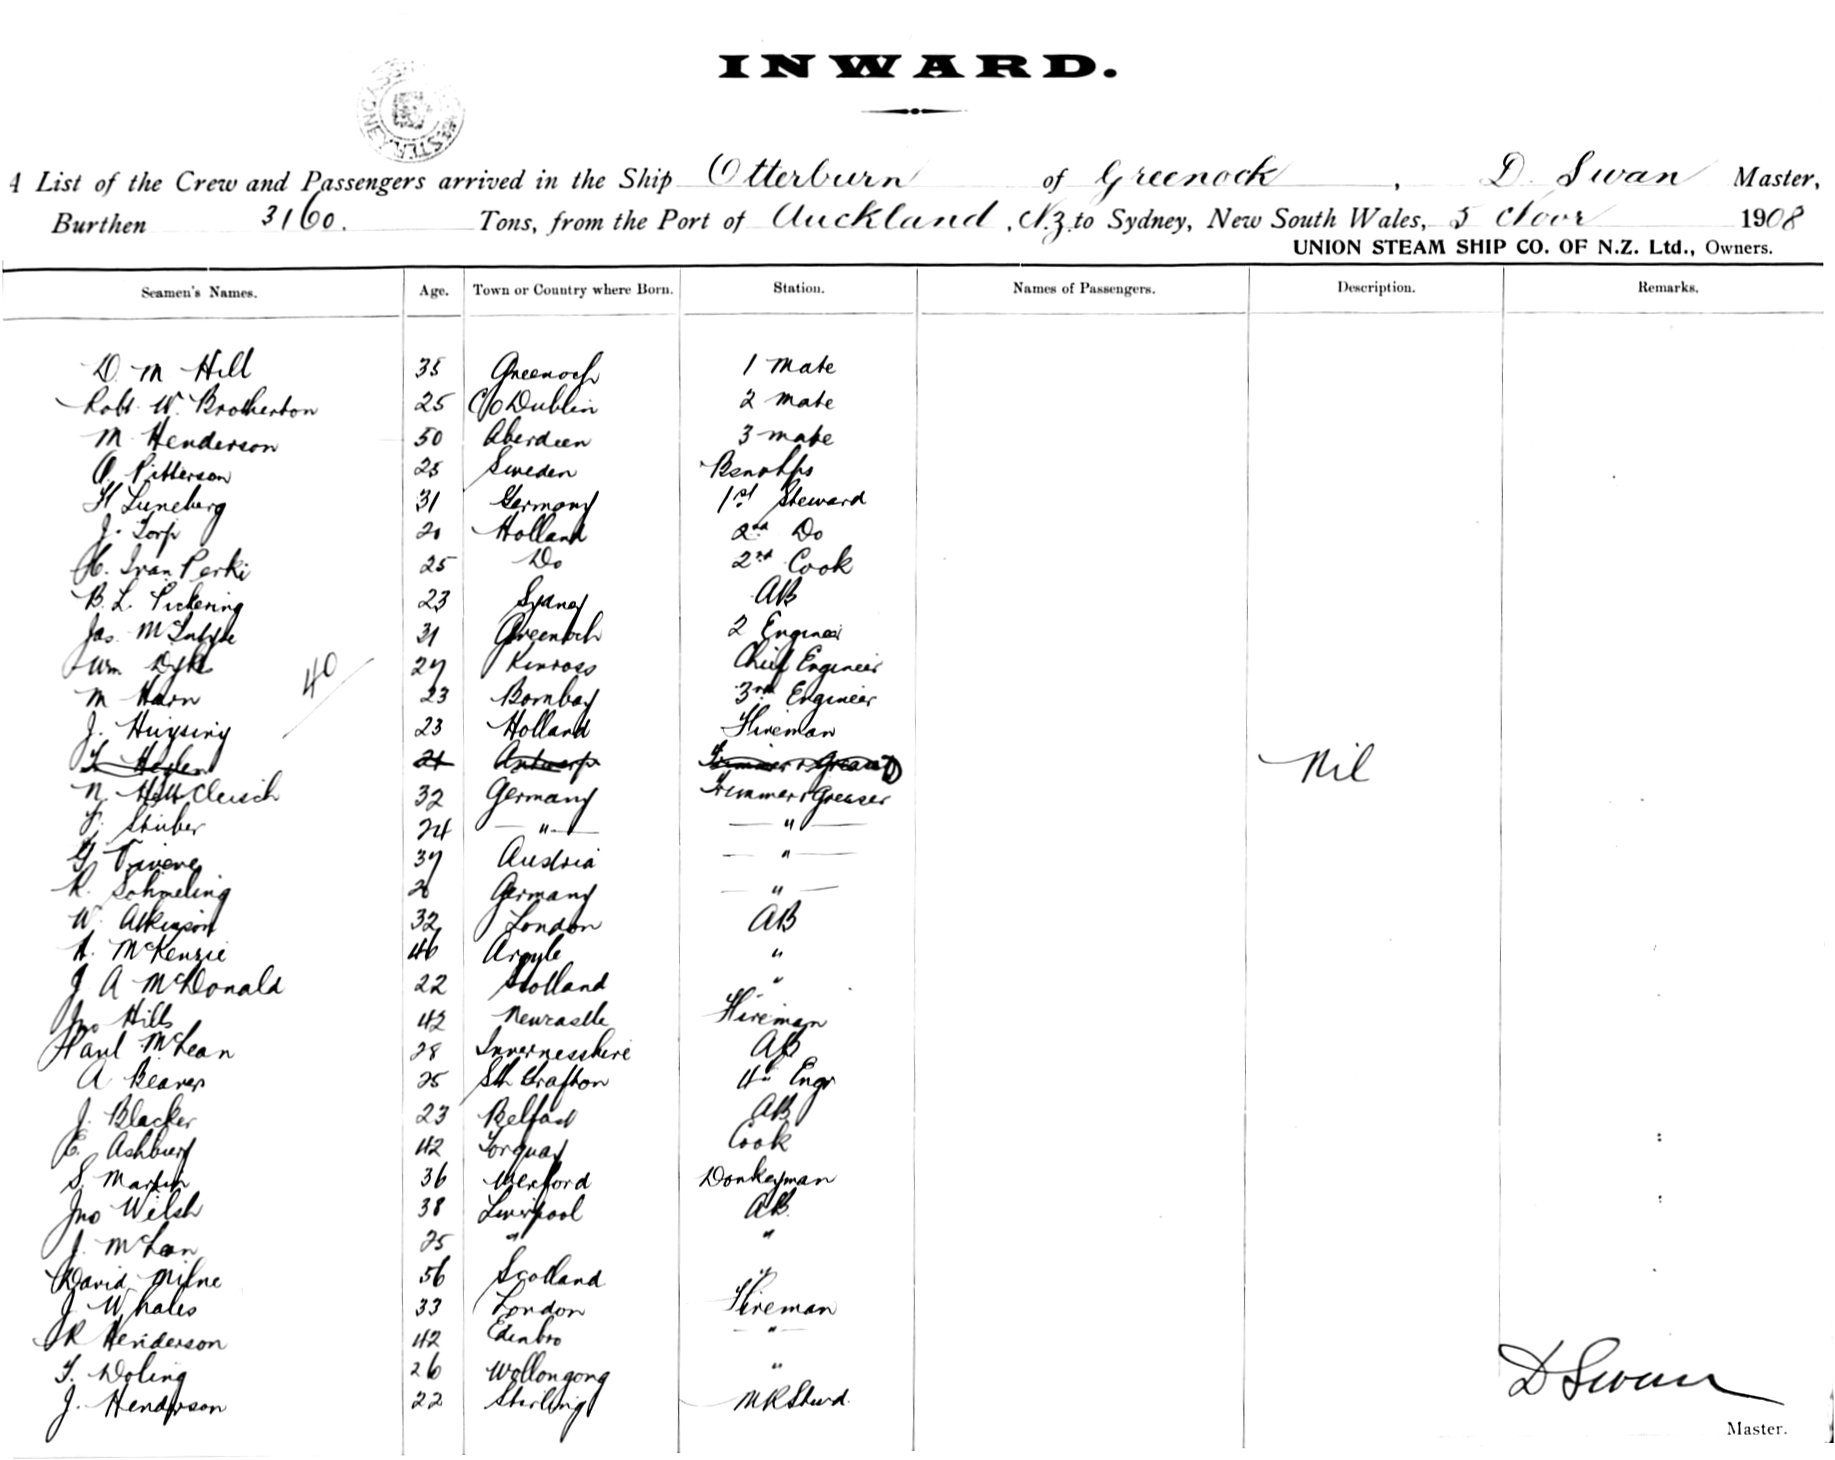 INWARD.
A List of the Crew and Passengers arrived in the Ship Otterburn of Greenock, D. Swan Master,
Burthen 3160. Tons, from the Port of Auckland, N.Z. to Sydney, New South Wales, 5 Novr 1908
UNION STEAM SHIP CO. OF N.Z. Ltd., Owners.
Seamen's Names. Age. Town or Country where Born. Station. Names of Passengers. Description. Remarks.
D. M Hill 35 Greenock 1 Mate
Robt. W. Brotherton 25 C/o Dublin 2 mate
M. Henderson 50 Aberdeen 3 mate
A. Pitterson 25 Sweden
H Luneberg 31 Germany 1st Steward
J. Torp 20 Holland 2nd Do
H. Ivan Perki 25 Do 2nd Cook
B. L. Pickering 23 Sydney AB
Jas. McIntyre 31 Greenock 2 Engineer
Wm Dyke 27 Kinross Chief Engineer
40
M Harn 23 Bombay 3rd Engineer
J. Huysing 23 Holland Fireman
21 Antwerp Trimmer & Greaser
Nil
N. 32 Germany Trimmer & Greaser
F. Stuber 24 " "
G 37 Austria "
R. Schmeling 20 Germany "
W. Atkinson 32 London AB
A. McKenzie 46 Argyle "
J A McDonald 22 Scotland "
Jno Hills 42 Newcastle Fireman
Paul McLean 28 Invernesshire AB
A Beaver 25 Sth Grafton 4th Engr
J. Blacker 23 Belfast AB
E. Ashbury 42 Torquay Cook
S. Martin 36 Wexford Donkeyman
Jno Welsh 38 Liverpool AB.
J. McLean 25 " "
David Milne 56 Scotland "
J. Whales 33 London Fireman
R Henderson 42 Edinbro "
T. Doling 26 Wollongong "
J. Henderson 22 Stirling M R Stwd.
D Swan
Master.